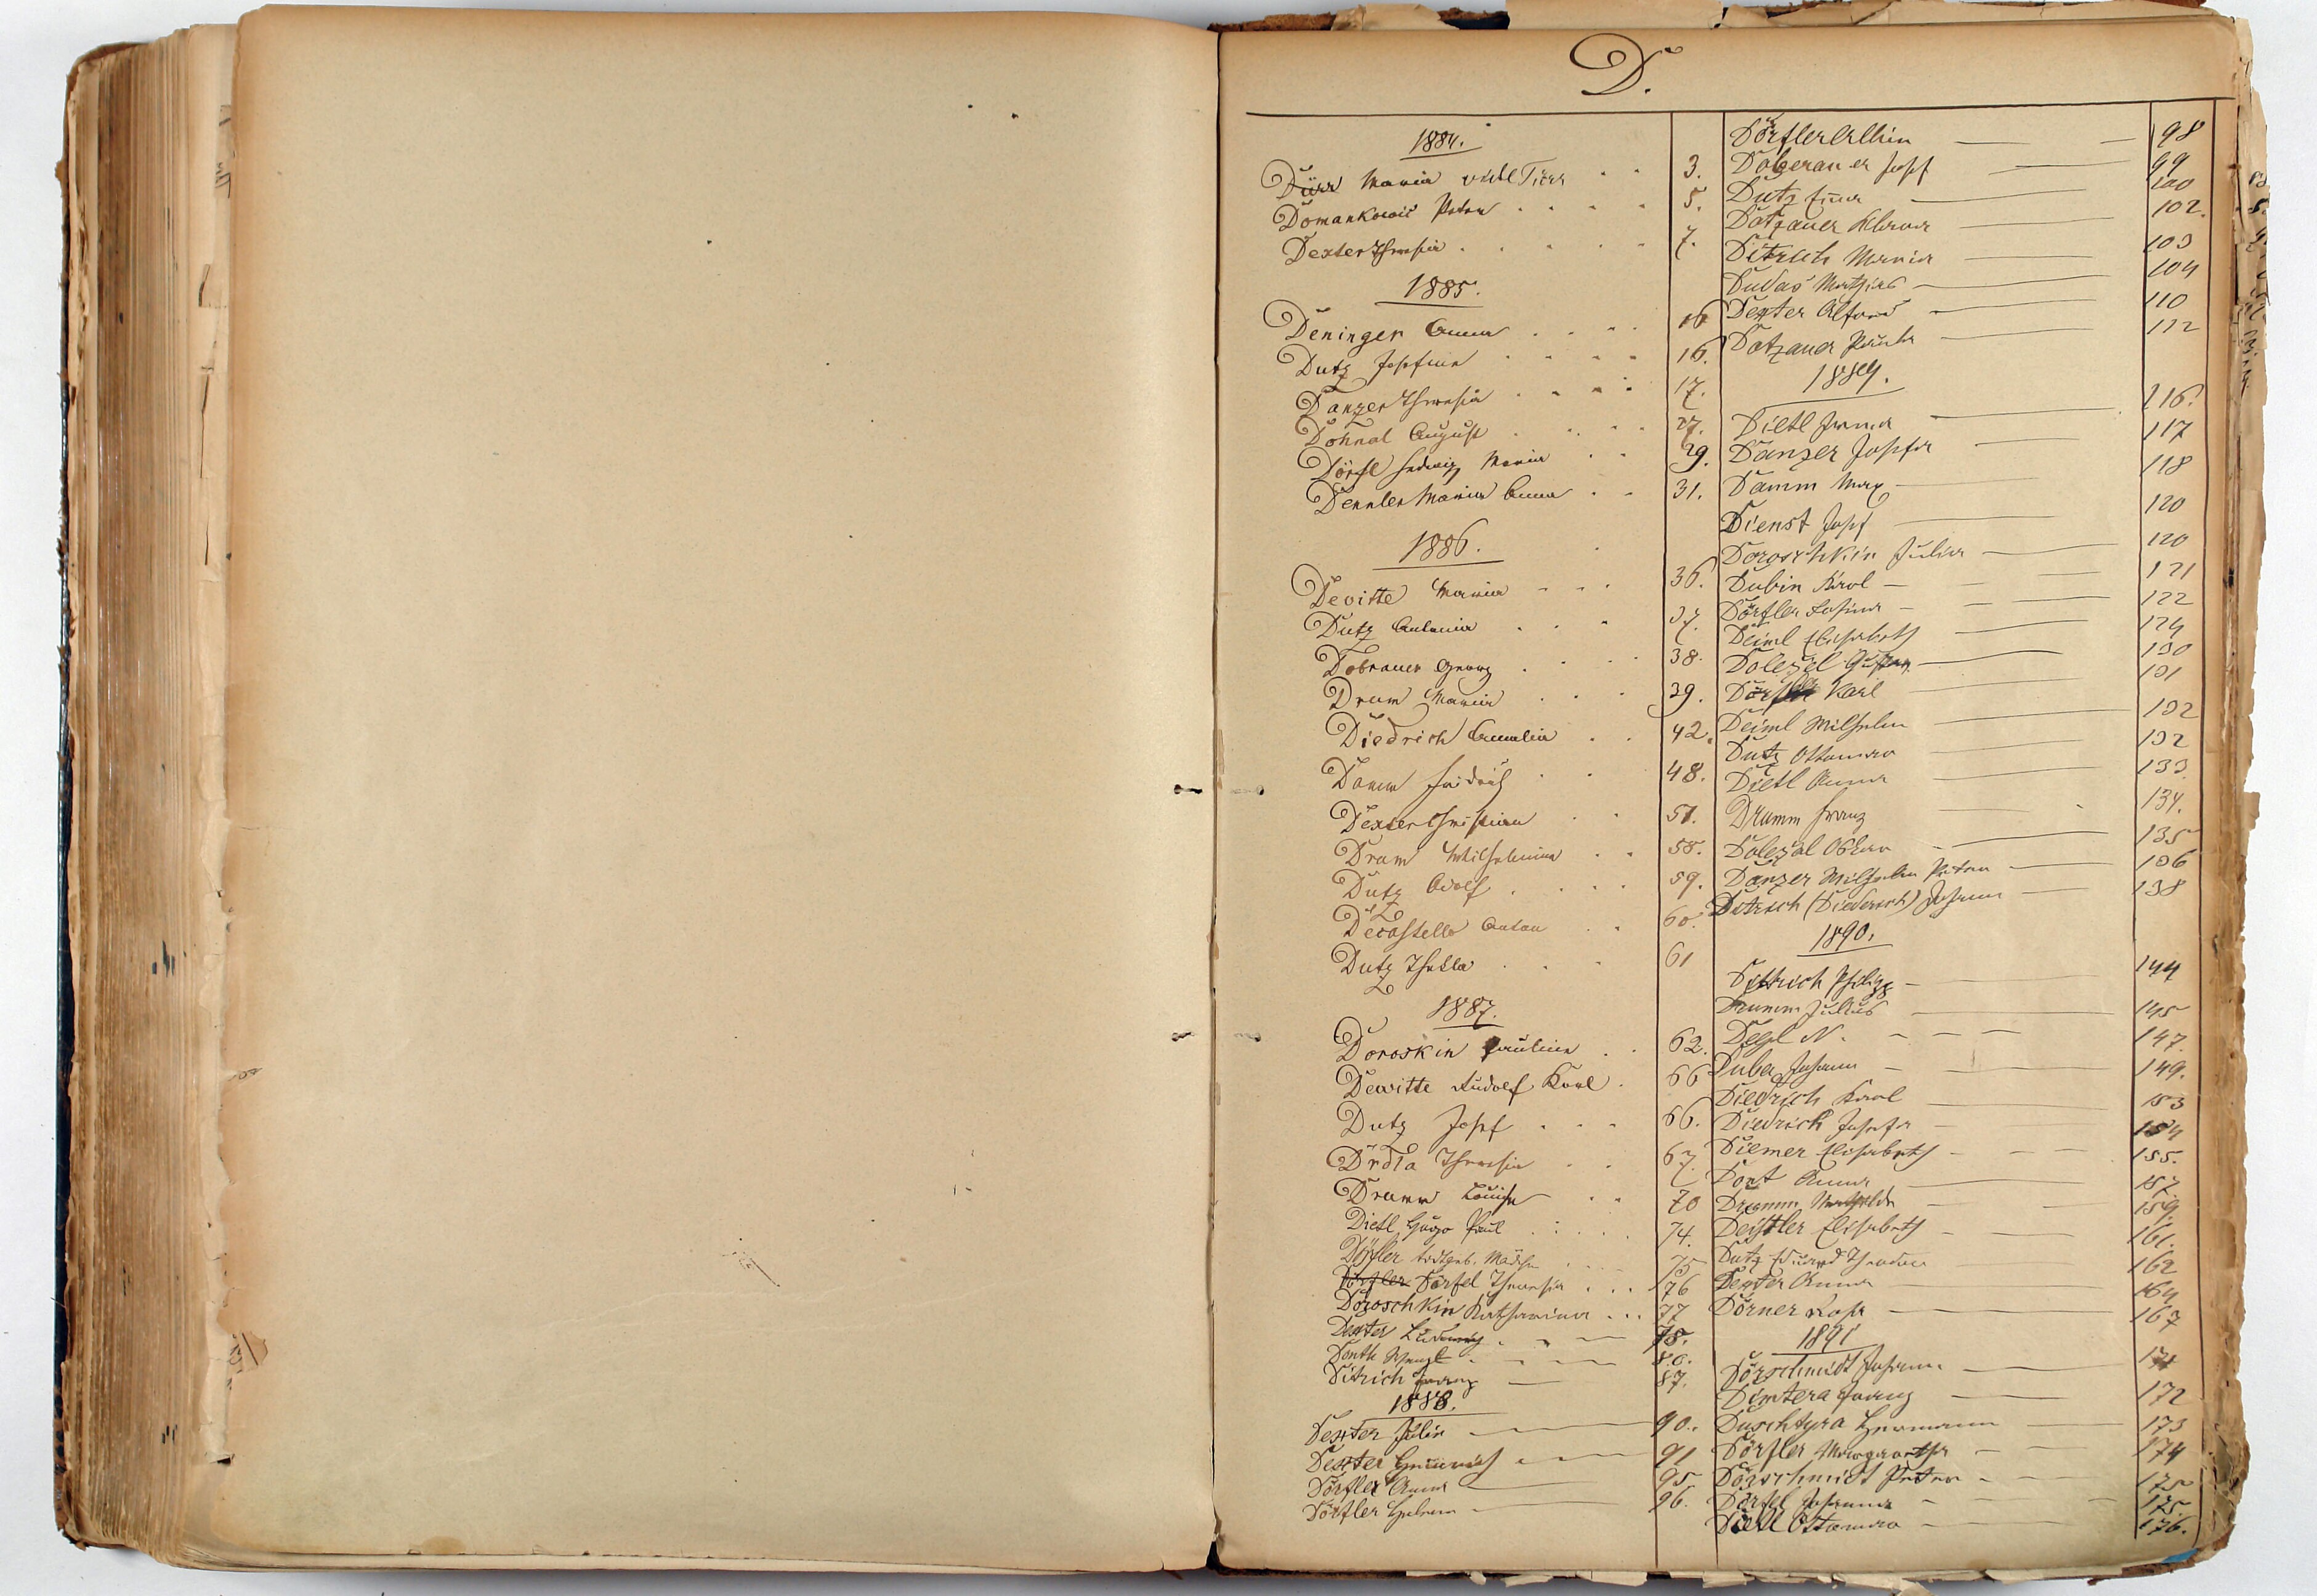 D.
1884.
Dürr Maria vide Tirr . . 3.
Domankowić Peter . . . . 5.
Dexler Theresia . . . . . 7.
1885.
Deninger Anna . . . . 16
Dutz Josefine . . . . 16.
Danzer Theresia . . . . 17.
Dohnal August . . . . 27.
Dörfl Hedwig Maria . . 29.
Dennler Maria Anna . . 31.
1886.
Devitte Maria . . . 36.
Dutz Antonia . . . 37.
Dobrauer Georg . . . . 38.
Drum Maria . . . 39.
Diedrich Amalia . . 42.
Damm Fridrich . . 48.
Dexler Christian . . 51.
Dram Wilhelmina . . 58.
Dutz Adolf . . . . 59.
Decastello Anton . . 60.
Dutz Thekla . . . 61
1887.
Doroskin Pauline . . 62.
Dewitte Rudolf Karl . 66
Dutz Josef . . . 66.
Drdla Theresia . . 67.
Dramm Louise . . 70
Dietl Hugo Paul . . . . . 74.
Dörfler todtgeb. Mädchen . . . . 75
Dörfel Theresia . . . 76
Doroschkin Katharina . . . 77
Dexter Ludwig . . — 78.
Donth Wenzl . — — 80.
Ditrich Franz — 87.
1888.
Dexter Julie — — 90.
Dexter Heinrich — — 91
Dörfler Anna — 95
Dörfler Helena — 96.
Dörfler Albin — — 98
Doberauer Josef — 99
Dutz — 100
Dotzauer Klara — 102.
Ditrich Maria — 103
Dudaś Mathias — 104
Dexter Alfred — 110
Dotzauer — 112
1889.
Dietl Irma — 116.
Danzer Josefa — 117
Damm Max — 118
Dienst Josef — 120
Doroschkin Julia — 120
Dubin Karl — — 121
Dörfler Rosina — — 122
Deiml Elisabeth — 124
Dolezel Gustav — 130
Dörfler Karl — 131
Deiml Wilhelm — 132
Dutz Ottomar — 132
Dietl Anna — 133
Drumm Franz — 134.
Dolezal Oskar — 135
Danzer Wilhelm Peter — 136
Ditrich (Diederich) Johann — 138
1890.
Dittrich Philipp — 144
Drumm Julius — 145
Degl N. — — — 147.
Duba Johann — — 149.
Diedrich Karl — 153
Diedrich Josefa — 154
Diemer Elisabeth — — — 155.
Dont Anna — 157.
Dramm Mathilde — — 159.
Deistler Elisabeth — — 161.
Dutz Eduard Theodor — 162
Dexter Anna — 164
Dörner Rosa — 167
1891
Dörschmidt Johann — 171
Dimtera Franz — 172
Duschtyra Hermann — 173
Dörfler Margaretha — — 174
Dörschmidt Peter — — — 175
Dörfel Johanna — — — 175.
Dietl Ottomar — — 176.